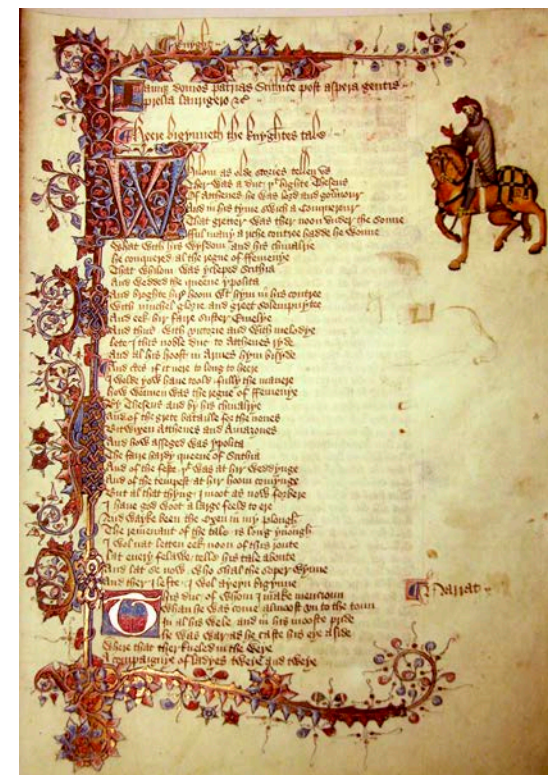 Knyght
Iamque domos patrias Scithice post aspera gentis
prelia laurigero &c
Heere bigynneth the knyghtes tale
Whilom as olde stories tellen us
Ther was a duc þt highte Theseus
Of Atthenes he was lord and governour
And in his tyme swich a Conquerour
That gretter was ther noon under the sonne
fful many a riche contree hadde he wonne
What with his wysdom and his chivalrie
he conquered al the regne of ffemenye
That whilom was ycleped Scithia
And wedded the queene ypolita
And broghte hir hoom wt hym in his contree
With muchel glorie and greet solempnytee
And eek hir faire suster Emelye
And thus with victorie and with melodye
lete I this noble duc to Atthenes ryde
And al his hoost in Armes hym bisyde
And certes if it nere to long to heere
I wolde yow have toold fully the manere
how wonnen was the regne of ffemenye
By Theseus and by his chivalrye
And of the grete bataille for the nones
Bitwixen Atthenes and Amazones
And how asseged was ypolita
The faire hardy queene of Scithia
And of the feste þt was at hir weddynge
And of the tempest at hir hoom comynge
But al that thyng I moot as now forbere
I have god woot a large feeld to ere
And wayke been the Oxen in my plough
The remenant of the tale is long ynough
I wol nat letten eek noon of this route
lat every felawe telle his tale aboute
And lat se now who shal the soper wynne
And ther I lefte I wol ayeyn bigynne
This duc of whom I make mencioun
Narrat
Whan he was come almoost un to the toun
In al his wele and in his mooste pride
he was war as he caste his eye aside
Where that ther kneled in the weye
A compaignye of ladyes tweye and tweye